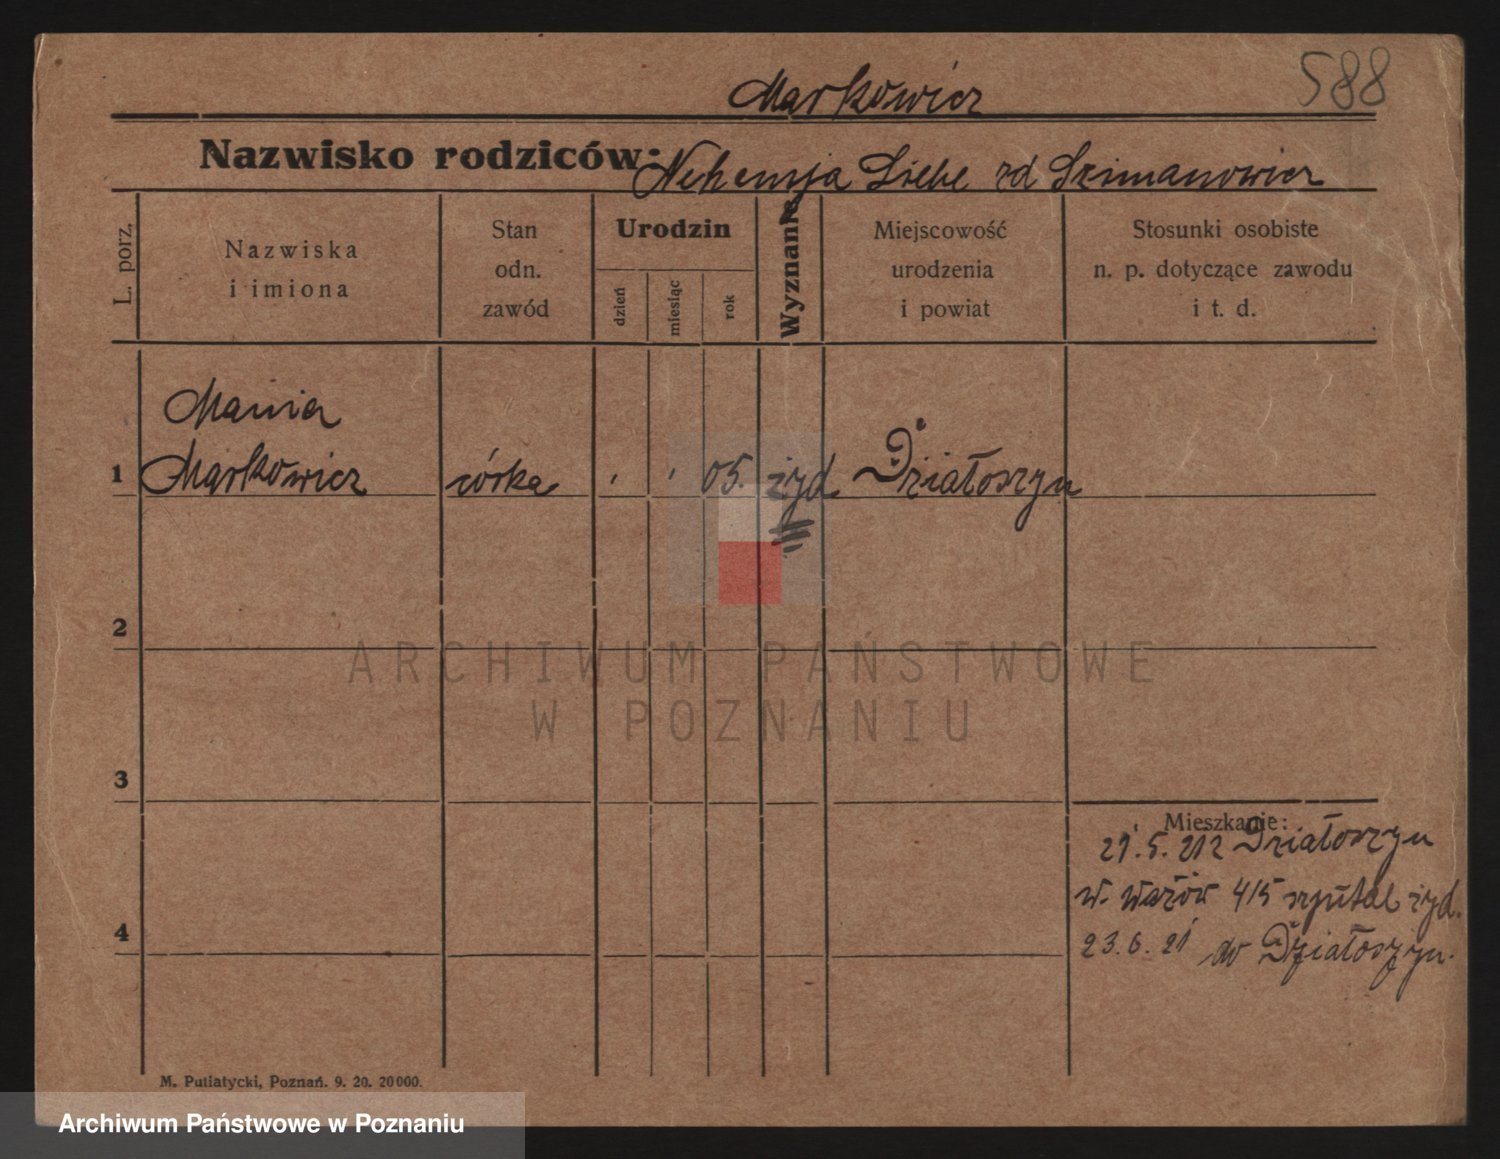 588
Markowicz
Nazwisko rodziców: Nehemja Liebe zd Szimanowicz
L. porz.
Nazwiska i imiona
Stan odn. zawód
Urodzin
dzień
miesiąc
rok
Wyznanie
Miejscowość urodzenia i powiat
Stosunki osobiste n. p. dotyczące zawodu i t. d.
Mania
1 Markowicz córka 05. żyd Działoszyn
2
ARCHIWUM PAŃSTWOWE
W POZNANIU
3
Mieszkanie:
21.5. Działoszyn
4
415 szpital żyd.
23.6.21 do Działoszyn.
M. Putiatycki, Poznań. 9. 20. 20000.
Archiwum Państwowe w Poznaniu